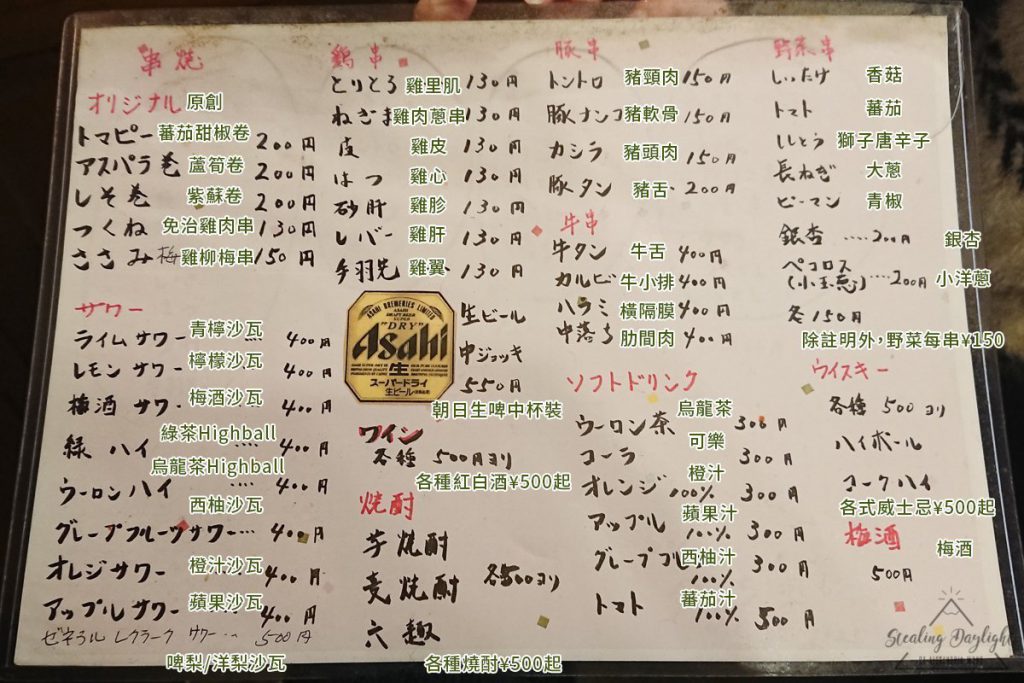 串焼
オリジナル 原創
トマピー 蕃茄甜椒卷 200円
アスパラ巻 蘆筍卷 200円
しそ巻 紫蘇卷 200円
つくね 免治雞肉串 130円
ささみ梅 雞柳梅串 150円
サワー
ライムサワー 青檸沙瓦 400円
レモンサワー 檸檬沙瓦 400円
梅酒サワー 梅酒沙瓦 400円
緑ハイ 綠茶Highball 400円
ウーロンハイ 烏龍茶Highball 400円
グレープフルーツサワー 西柚沙瓦 400円
オレジサワー 橙汁沙瓦 400円
アップルサワー 蘋果沙瓦 400円
ゼネラルレクラークサワー 500円
啤梨/洋梨沙瓦
鶏串
とりとろ 雞里肌 130円
ねぎま 雞肉蔥串 130円
皮 雞皮 130円
はつ 雞心 130円
砂肝 雞胗 130円
レバー 雞肝 130円
手羽先 雞翼 130円
ASAHI BREWERIES LIMITED
"DRY"
Asahi
生
スーパードライ
生ビール
生ビール
中ジョッキ
550円
朝日生啤中杯裝
ワイン
各種 500円ヨリ
各種紅白酒¥500起
焼酎
芋焼酎
麦焼酎 各500ヨリ
六趣
各種燒酎¥500起
豚串
トントロ 豬頸肉 150円
豚ナンコ 豬軟骨 150円
カシラ 豬頭肉 150円
豚タン 豬舌 200円
牛串
牛タン 牛舌 400円
カルビ 牛小排 400円
ハラミ 橫隔膜 400円
中落ち 肋間肉 400円
ソフトドリンク
ウーロン茶 烏龍茶 300円
コーラ 可樂 300円
オレンジ 100% 橙汁 300円
アップル 100% 蘋果汁 300円
グレープフル 100% 西柚汁 300円
トマト 100% 蕃茄汁 500円
野菜串
しいたけ 香菇
トマト 蕃茄
ししとう 獅子唐辛子
長ねぎ 大蔥
ピーマン 青椒
銀杏 ....200円 銀杏
ペコロス
(小玉葱) ...200円 小洋蔥
各150円
除註明外，野菜每串¥150
ウイスキー
各種 500ヨリ
ハイボール
コークハイ
各式威士忌¥500起
梅酒 梅酒
500円
Stealing Daylight